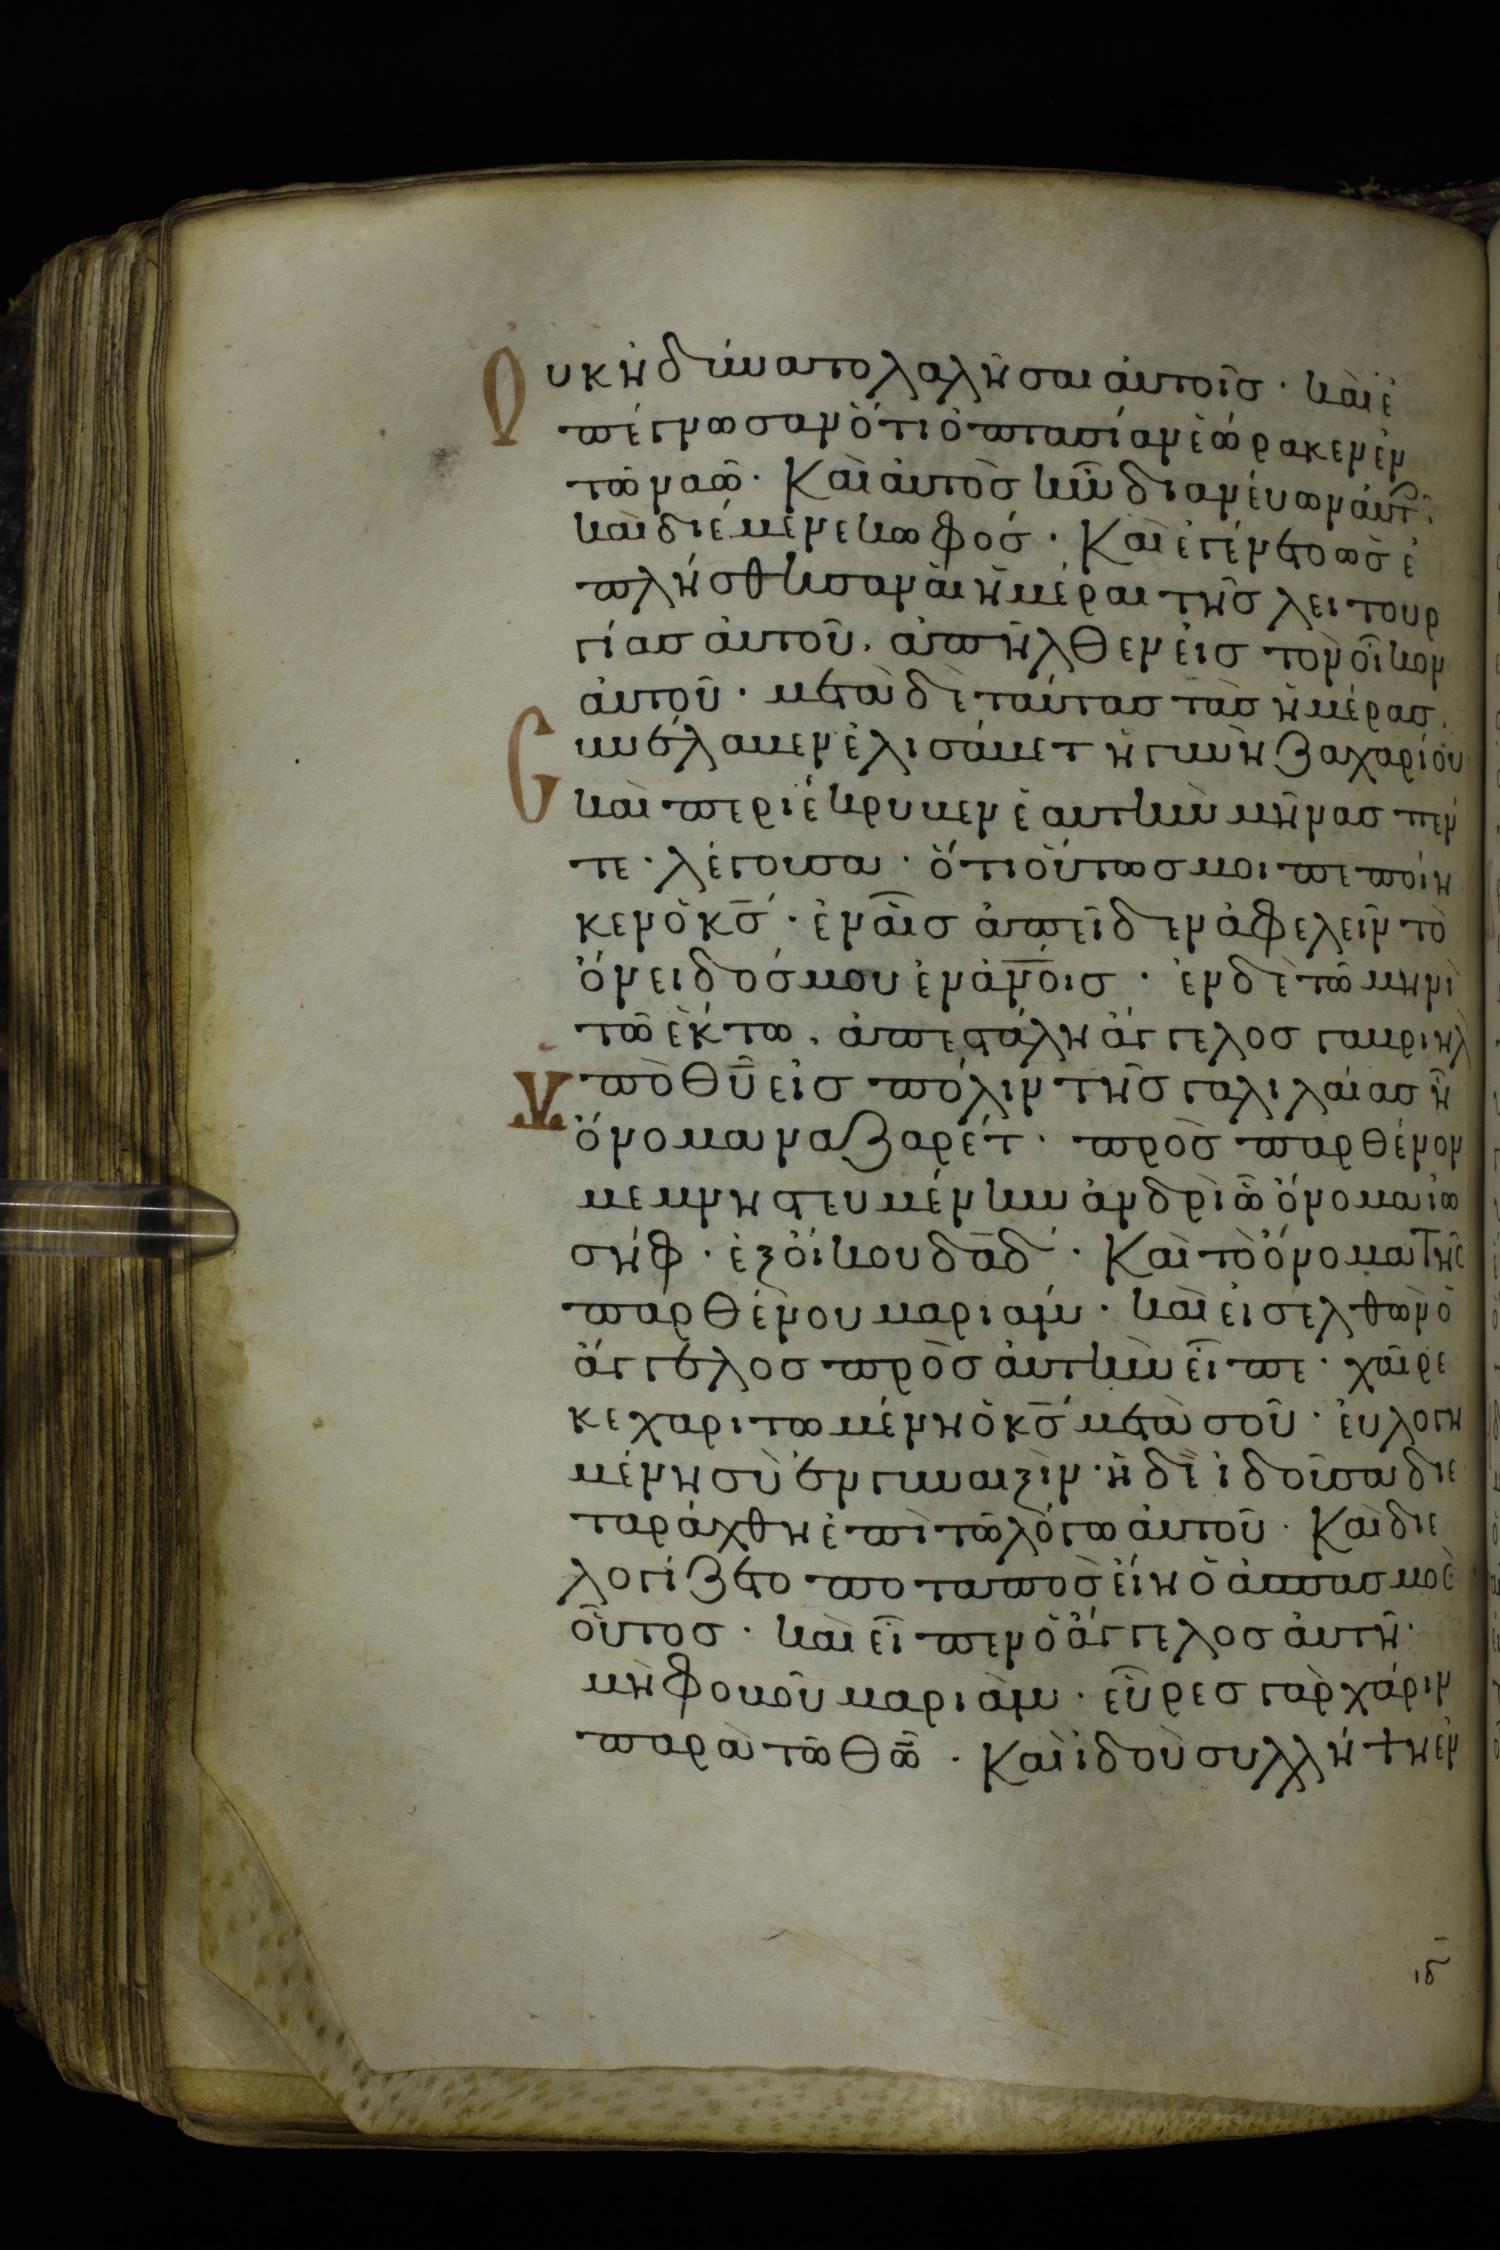 Ουκ ἠδύνατο λαλῆσαι ἀυτοῖσ · καὶ ἐ
πέγνωσαν ὅτι ὀπτασίαν ἑώρακεν ἐν
τῶ ναῶ · Καὶ ἀυτὸσ ἦν διανέυων ἀυτ
καὶ διέμενε κωφόσ · Καὶ ἐγένετο ὡσ ἐ
πλήσθησαν ἁι ἡμέραι τῆσ λειτουρ
γίασ ἀυτοῦ · ἀπῆλθεν ἐισ τὸν ὀῖκον
ἀυτοῦ · μετὰ δὲ ταύτασ τὰσ ἡμέρασ ·
Cυνέλαβεν ἐλισάβετ ἡ γυνὴ ζαχαρίου
καὶ περιέκρυβεν ἑαυτὴν μῆνασ πέν
τε · λέγουσα · ὅτι ὁύτωσ μοι πεποίη
κεν ὁ κ̅σ̅ · ἐν ἇισ ἀπεῖδεν ἀφελεῖν τὸ
ὄνειδόσ μου ἐν ἀν̅ο̅ισ · ἐν δὲ τῶ μηνὶ
τῶ ἕκτω · ἀπεστάλη ἄγγελοσ γαβριὴλ
Ὑπὸ Θ̅υ̅ ἐισ πόλιν τῆσ γαλιλάιασ ἧ
ὄνομα ναζαρέτ · πρὸσ παρθένον
μεμνηστευμένην ἀνδρὶ ὧ ὄνομα ἰω
σήφ · ἐξ ὀίκου δ̅α̅δ · Καὶ τὸ ὄνομα τῆσ
παρθένου μαριάμ · καὶ ἐισελθὼν ὁ
ἄγγελοσ πρὸσ ἀυτὴν εἶπε · χᾶιρε
κεχαριτωμένη ὁ κ̅σ̅ μετὰ σοῦ · ἐυλογη
μένη σὺ ἐν γυναιξὶν · ἡ δὲ ἰδοῦσα διε
ταράχθη ἐπὶ τῶ λόγω ἀυτοῦ · Καὶ διε
λογίζετο ποταπὸσ ἐίη ὁ ἀσπασμὸσ
οὗτοσ · καὶ εἶπεν ὁ ἄγγελοσ ἀυτῆ ·
μὴ φοβοῦ μαριὰμ · εὗρεσ γὰρ χάριν
παρὰ τῶ Θ̅ω̅ · Καὶ ἰδοὺ συλλήψη ἐν
ιδ̅